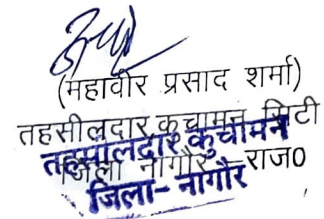 (महावीर प्रसाद शर्मा)
तहसीलदार कुचामन सिटी
जिला नागौर राज0
तहसीलदार कुचामन
जिला-नागौर